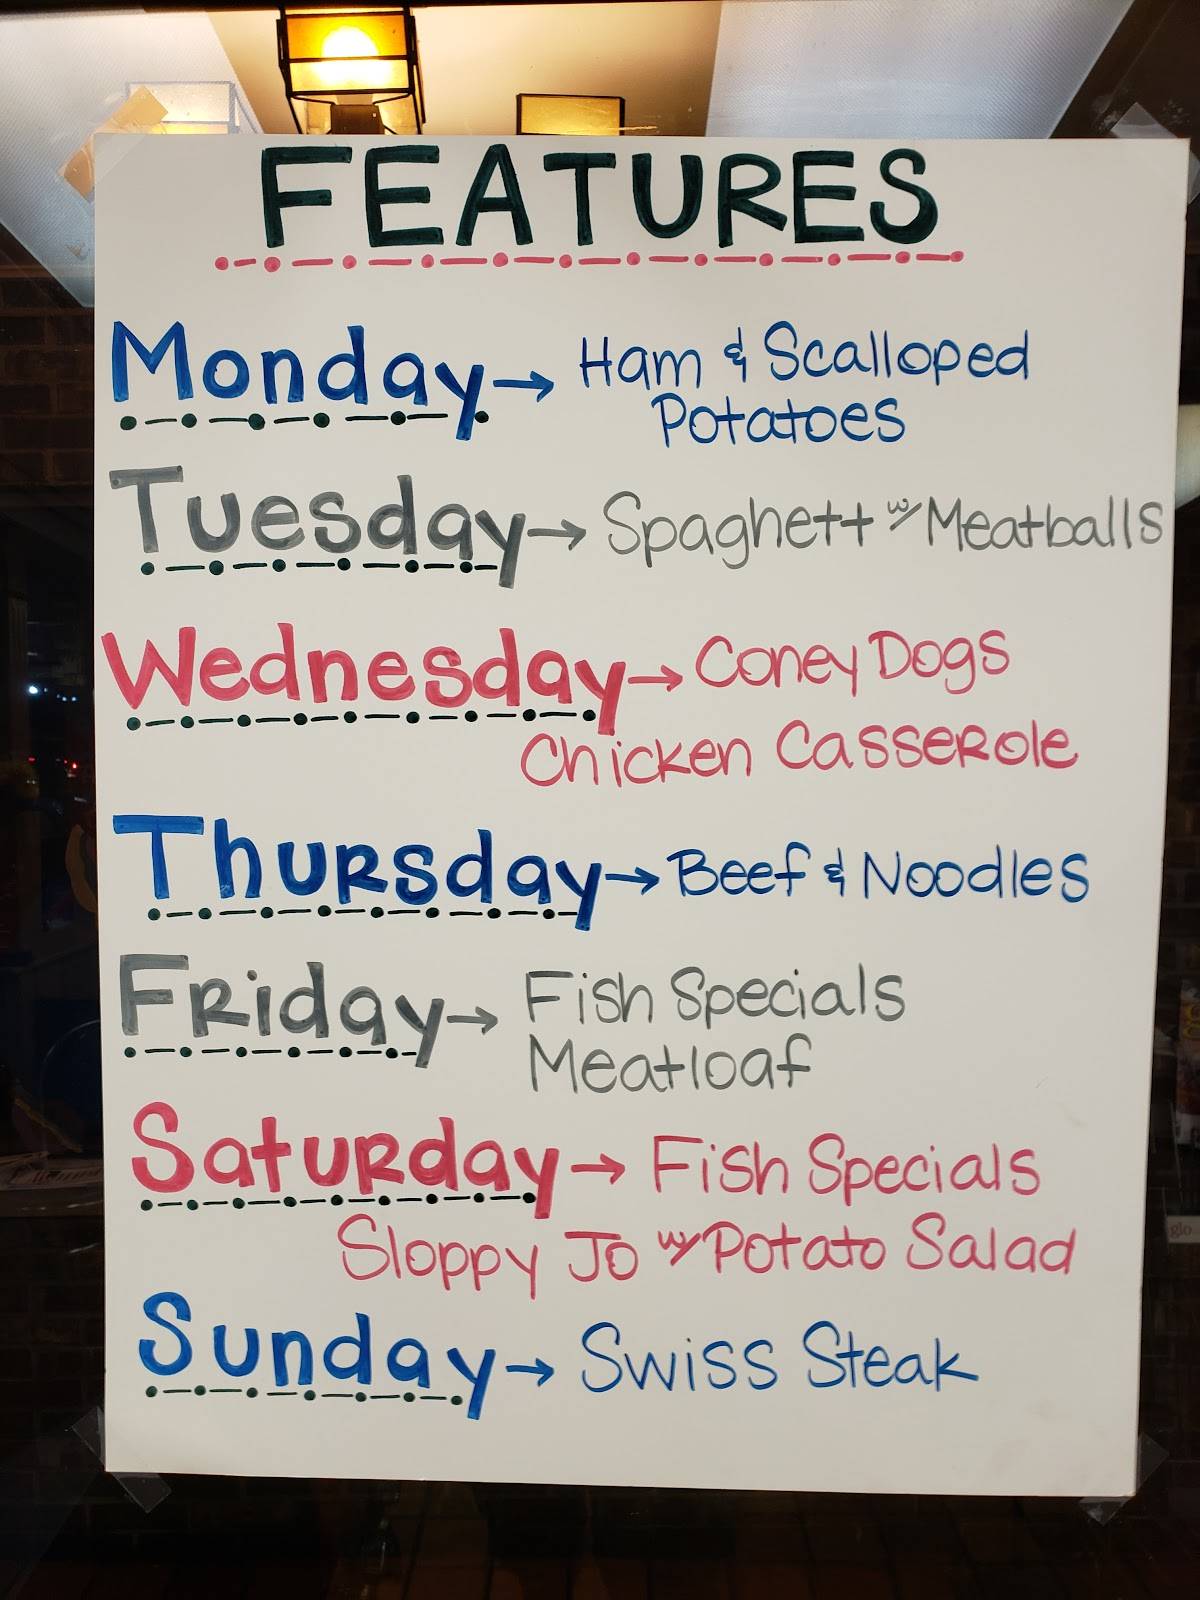 FEATURES
Monday → Ham & Scalloped
Potatoes
Tuesday → Spaghett w/ Meatballs
Wednesday → Coney Dogs
Chicken Casserole
Thursday → Beef & Noodles
Friday → Fish Specials
Meatloaf
Saturday → Fish Specials
Sloppy Jo w/ Potato Salad
Sunday → Swiss Steak